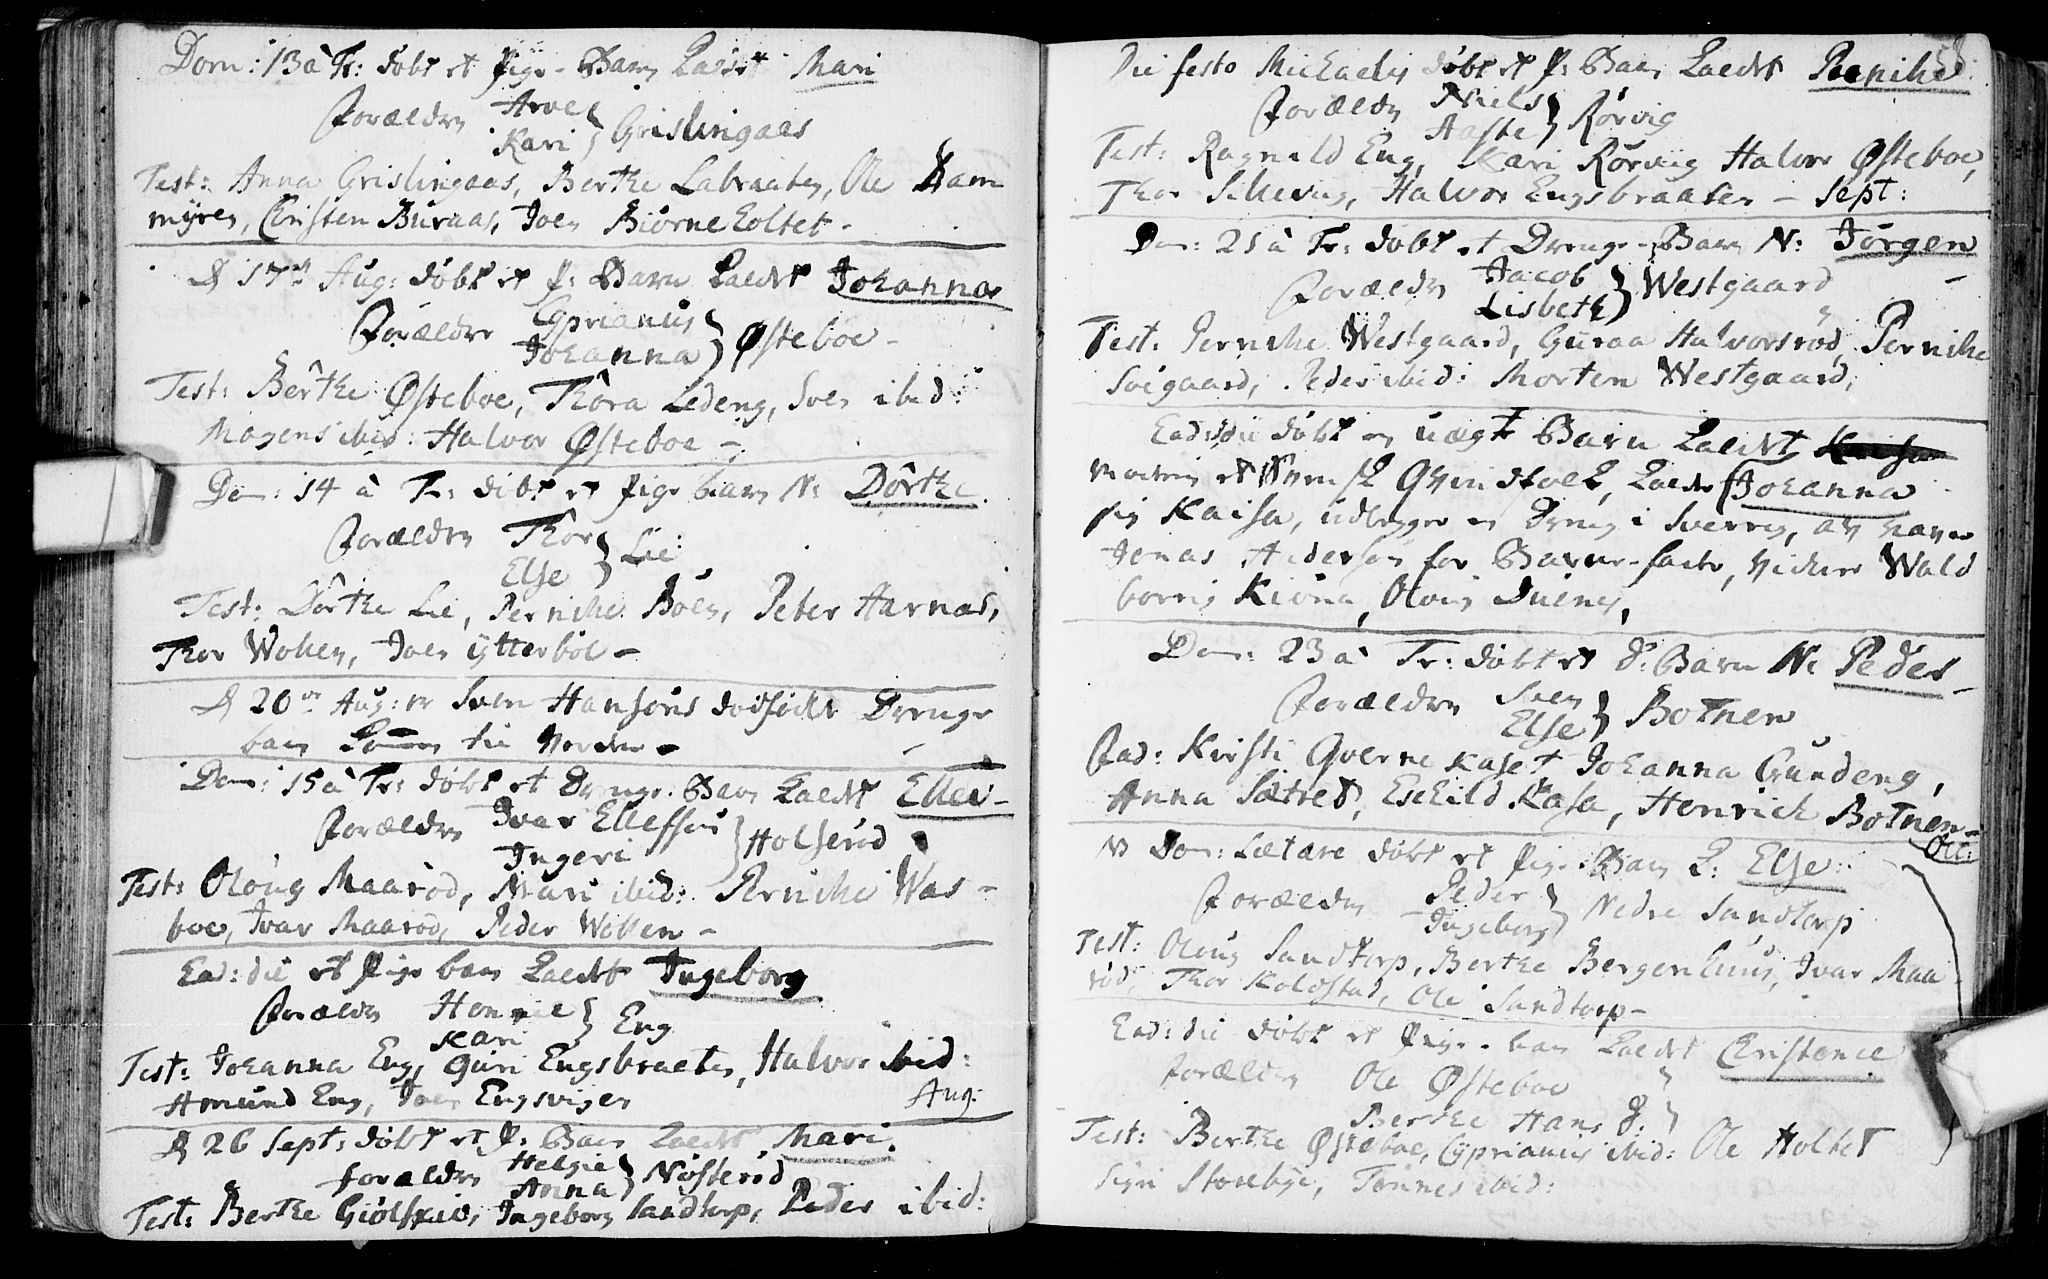 Dom: 13 à Tr: döbt et Pige-Barn kaldt Mari
Forældre Arve
Kari } Grislingaas
Test: Anna Grislingaas, Berthe Labraaten, Ole Dam
myren, Christen Buraas, Joen Biörneholtet.
D 17de Aug: döbt et P: Barn kaldt Johanna
Forældre Cyprianus
Johanna } Østeboe
Test: Berthe Østeboe, Thora Ledeng, Sven ibid:
Mogens ibid: Halvor Østeboe
Dom: 14 à Tr: döbt et Pige barn N: Dorthe
Forældre Thor
Else } Lie
Test: Dorthe Lie, Pernille Böen, Peter Aarnæs,
Thor Wollen, Joen ytterböe
D 20de Aug: er Sven Hansöns dödfödte Drenge
barn kommen til Verden
Dom: 15 à Tr: döbt et Drenge-Barn kaldt Ellev
Forældre Ivar Ellefsön
Ingeri } Holseröd
Test: Oloug Maaröd, Mari ibid: Pernille Was-
boe, Ivar Maaröd, Peder Wollen
Ead: die et Pige barn kaldt Ingeborg
Forældre Hennie
Kari } Eng
Test: Johanna Eng, Guri Engsbraaten, Halvor ibid:
Amund Eng, Joen Engsvigen Aug:
D 26 Sept: döbt et P: Barn kaldt Mari.
Forældre Helgie
Anna } Nösteröd
Test: Berthe Giölstad, Ingeborg Sandtorp, Peder ibid:
58.
Die festo Michaelis döbt et P: Barn kaldt Pernille
Forældre Niels
Aaste } Rörvig
Test: Ragnild Eng, Kari Rörvig Halvor Østeboe,
Thor Sillevig, Halvor Engsbraaten - Sept:
Dom: 21 à Tr: döbt et Drenge-Barn N: Jörgen
Forældre Jacob
Lisbeth } Westgaard
Test: Pernille Westgaard, Guraa Halvorsröd, Pernille
Soigaard, Peder ibid: Morten Westgaard,
Ead: die döbt en uægte Barn kaldt
Moderen et Svensk Qvindfolk, kalder Johanna
sig Kaisa, udlegger en Dreng i Sverrig, ved navn
Jonas Anderson for Barne-fader, vidner Wald
borris Kiöna, Olvis Duenes,
Dom: 23 à Tr: döbt et D: Barn N: Peder
Forældre Sven
Else } Botnen
Fad: Kirsti Qvernekaset Johanna Gundeng,
Anna Sætret, Eschild Kasa, Henrich Botnen
Oct:
N Dom: Lætare döbt et Pige Barn k: Else
Forældre Peder
Ingeborg } Nedre Sandtorp
Test: Oloug Sandtorp, Berthe Bergenhuus, Ivar Maa
röd, Thor Kolöstad, Ole Sandtorp
Ead: die döbt et Pige-barn kaldt Christence
Forældre Ole Østeboe
Berthe Hans D: }
Test: Berthe Østeboe, Cyprianus ibid: Ole Holtet
Sigri Storebye, Tönnes ibid: